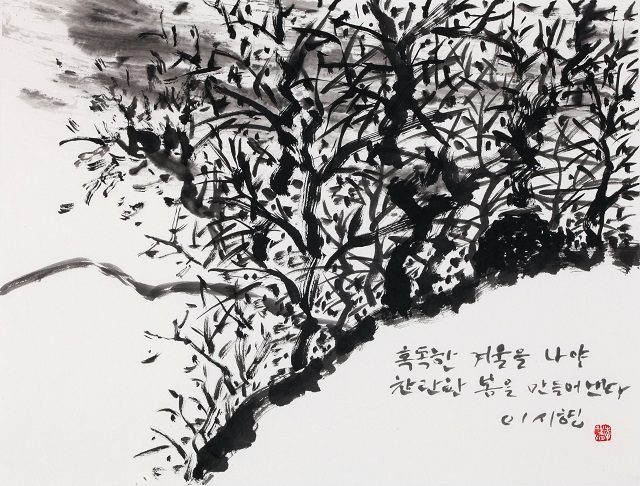 혹독한 겨울을 나야
찬란한 봄을 만들어낸다
이시형